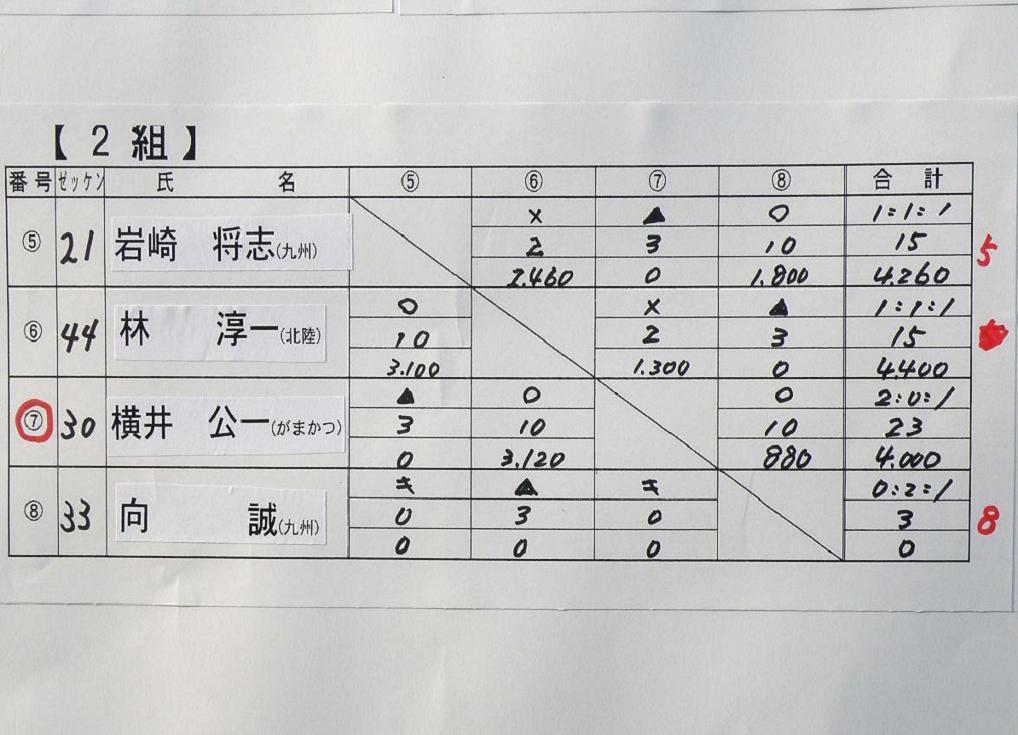 【 2 組 】
番号 ゼッケン 氏 名 ⑤ ⑥ ⑦ ⑧ 合 計
× ▲ ○ 1:1:1
⑤ 21 岩崎 将志(九州) 2 3 10 15 5
2.460 0 1.800 4.260
○ × ▲ 1:1:1
⑥ 44 林 淳一(北陸) 10 2 3 15
3.100 1.300 0 4.400
▲ ○ ○ 2:0:1
⑦ 30 横井 公一(がまかつ) 3 10 10 23
0 3.120 880 4.000
キ ▲ キ 0:2:1
⑧ 33 向 誠(九州) 0 3 0 3 8
0 0 0 0